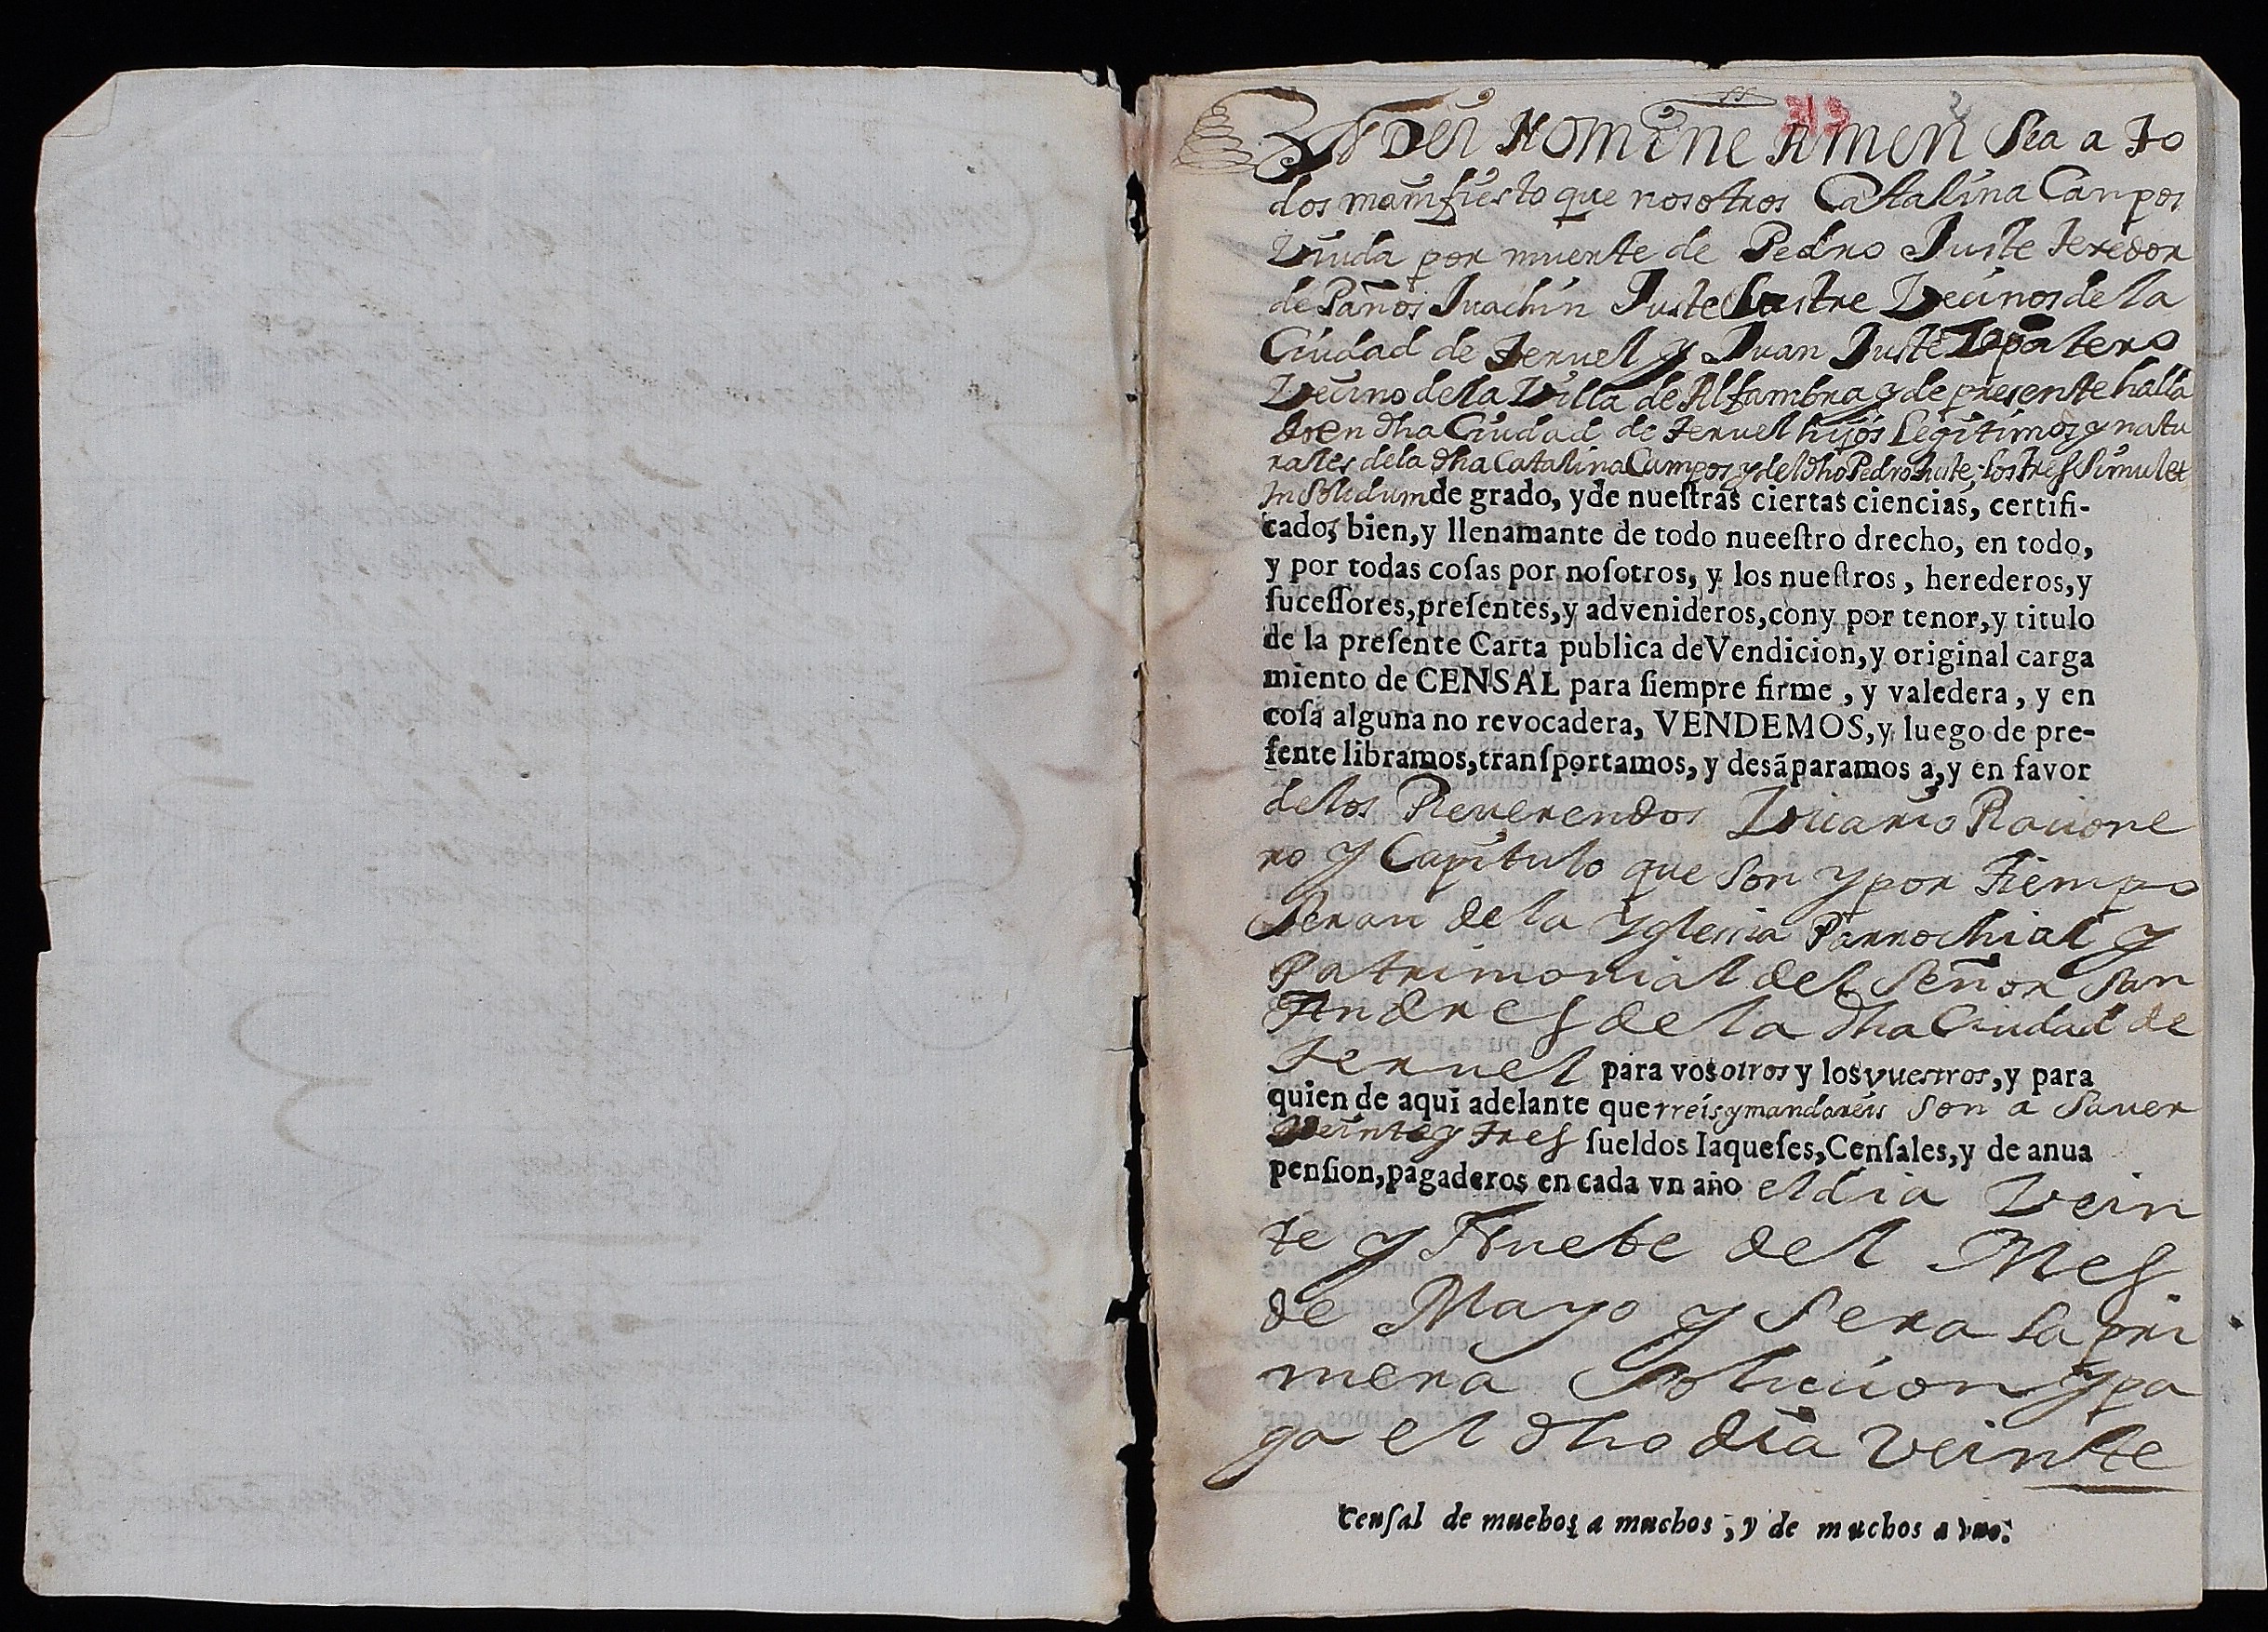 En Dei Nomine Amen Sea a to
dos manifiesto que nosotros Catalina Campos
Viuda por muerte de Pedro Juste texedor
de Paños Juachin Juste Sastre Vecinos de la
Ciudad de Teruel y Juan Juste Zapatero
Vecino de la Villa de Alfambra y de presente halla
dos en dha Ciudad de Teruel hijos legitimos y natu
rales de la dha Catalina Campos y del dho Pedro Juste, los tres Simul et
In Solidum de grado, yde nueſtras ciertas ciencias, certifi-
cados bien, y llenamante de todo nueeſtro drecho, en todo,
y por todas coſas por noſotros, y los nueſtros, herederos, y
ſuceſſores, preſentes, y advenideros, cony por tenor, y titulo
de la preſente Carta publica de Vendicion, y original carga
miento de CENSAL para ſiempre firme, y valedera, y en
coſa alguna no revocadera, VENDEMOS, y luego de pre-
ſente libramos, tranſportamos, y desãparamos a, y en favor
de los Reverendos Vicario Racione
ro y Capitulo que son y por tiempo
seran de la Yglesia Parrochial y
Patrimonial del Señor San
Andres de la dha Ciudad de
Teruel para vosotros y los vuestros, y para
quien de aqui adelante querreis y mandareis son a saver
Veinte y tres ſueldos Iaqueſes, Cenſales, y de anua
penſion, pagaderos en cada vn año el dia Vein
te y Nuebe del Mes
de Mayo y sera la pri
mera Solucion y pa
ga el dho dia veinte
Cenſal de muchos a muchos, y de muchos a vno.